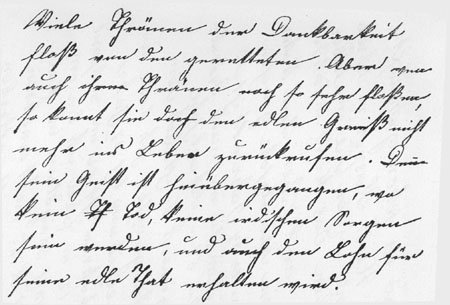 Viele Thränen der Dankbarkeit
floß von den geretteten. Aber wen
auch ihre Thränen noch so sehr floßen,
so konnt sie doch den edlen Greiß nicht
mehr ins Leben zurückrufen. Denn
sein Geist ist hinübergegangen, wo
kein Tod, keine irdschen Sorgen
sein werden, und auch den Lohn für
seine edle That erhalten wird.